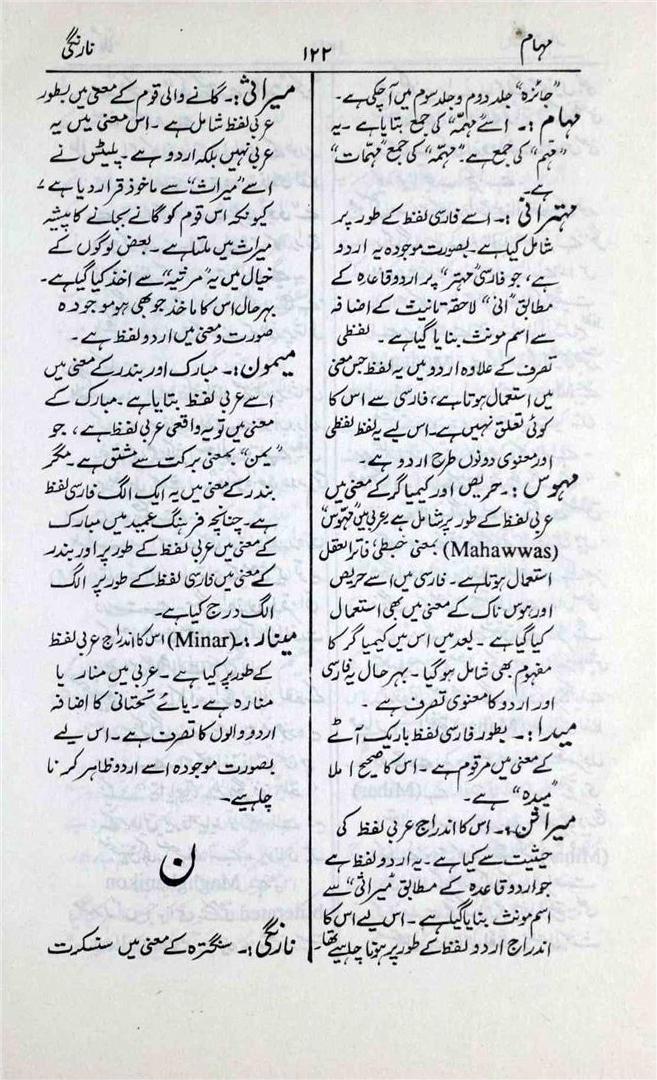 مہام
۱۲۲
نارنگی
”جائزہ“ جلد دوم و جلد سوم میں آچکی ہے۔
مہام:۔ اسے ”مہمّہ“ کی جمع بتایا ہے۔ یہ
”مہم“ کی جمع ہے۔ ”مہمّہ“ کی جمع ”مہمّات“
ہے۔
مہترانی:۔ اسے فارسی لفظ کے طور پر
شامل کیا ہے۔ بصورت موجودہ یہ اردو
ہے، جو فارسی ”مہتر“ پر اردو قاعدہ کے
مطابق ”انی“ لاحقہ تانیث کے اضافہ
سے اسم مونث بنایا گیا ہے۔ لفظی
تصرف کے علاوہ اردو میں یہ لفظ جس معنی
میں استعمال ہوتا ہے، فارسی سے اس کا
کوئی تعلق نہیں ہے۔ اس لیے یہ لفظ لفظی
اور معنوی دونوں طرح اردو ہے۔
مہوس:۔ حریص اور کیمیا گر کے معنی میں
عربی لفظ کے طور پر شامل ہے۔ عربی میں ”مہوّس“
(Mahawwas) بمعنی خبطی، فاترالعقل
استعمال ہوتا ہے۔ فارسی میں اسے حریص
اور ہوس ناک کے معنی میں بھی استعمال
کیا گیا ہے۔ بعد میں اس میں کیمیا گر کا
مفہوم بھی شامل ہو گیا۔ بہرحال یہ فارسی
اور اردو کا معنوی تصرف ہے۔
میدا:۔ بطور فارسی لفظ باریک آٹے
کے معنی میں مرقوم ہے۔ اس کا صحیح املا
”میدہ“ ہے۔
میراثن:۔ اس کا اندراج عربی لفظ کی
حیثیت سے کیا ہے۔ یہ اردو لفظ ہے
جو اردو قاعدہ کے مطابق ”میراثی“ سے
اسم مونث بنایا گیا ہے۔ اس لیے اس کا
اندراج اردو لفظ کے طور پر ہونا چاہیے تھا۔
میراثی:۔ گانے والی قوم کے معنی میں بطور
عربی لفظ شامل ہے۔ اس معنی میں یہ
عربی نہیں بلکہ اردو ہے۔ پلیٹس نے
اسے ”میراث“ سے ماخوذ قرار دیا ہے،
کیونکہ اس قوم کو گانے بجانے کا پیشہ
میراث میں ملتا ہے۔ بعض لوگوں کے
خیال میں یہ ”مرثیہ“ سے اخذ کیا گیا ہے۔
بہرحال اس کا ماخذ جو بھی ہو موجودہ
صورت و معنی میں اردو لفظ ہے۔
میمون:۔ مبارک اور بندر کے معنی میں
اسے عربی لفظ بتایا ہے۔ مبارک کے
معنی میں تو یہ واقعی عربی لفظ ہے، جو
”یمن“ بمعنی برکت سے مشتق ہے۔ مگر
بندر کے معنی میں یہ ایک الگ فارسی لفظ
ہے۔ چنانچہ فرہنگ عمید میں مبارک
کے معنی میں عربی لفظ کے طور پر اور بندر
کے معنی میں فارسی لفظ کے طور پر الگ
الگ درج کیا ہے۔
مینار:۔ (Minar) اس کا اندراج عربی لفظ
کے طور پر کیا ہے۔ عربی میں منار یا
منارہ ہے۔ یائے تحتانی کا اضافہ
اردو والوں کا تصرف ہے۔ اس لیے
بصورت موجودہ اسے اردو ظاہر کرنا
چاہیے۔
ن
نارنگی:۔ سنگترہ کے معنی میں سنسکرت